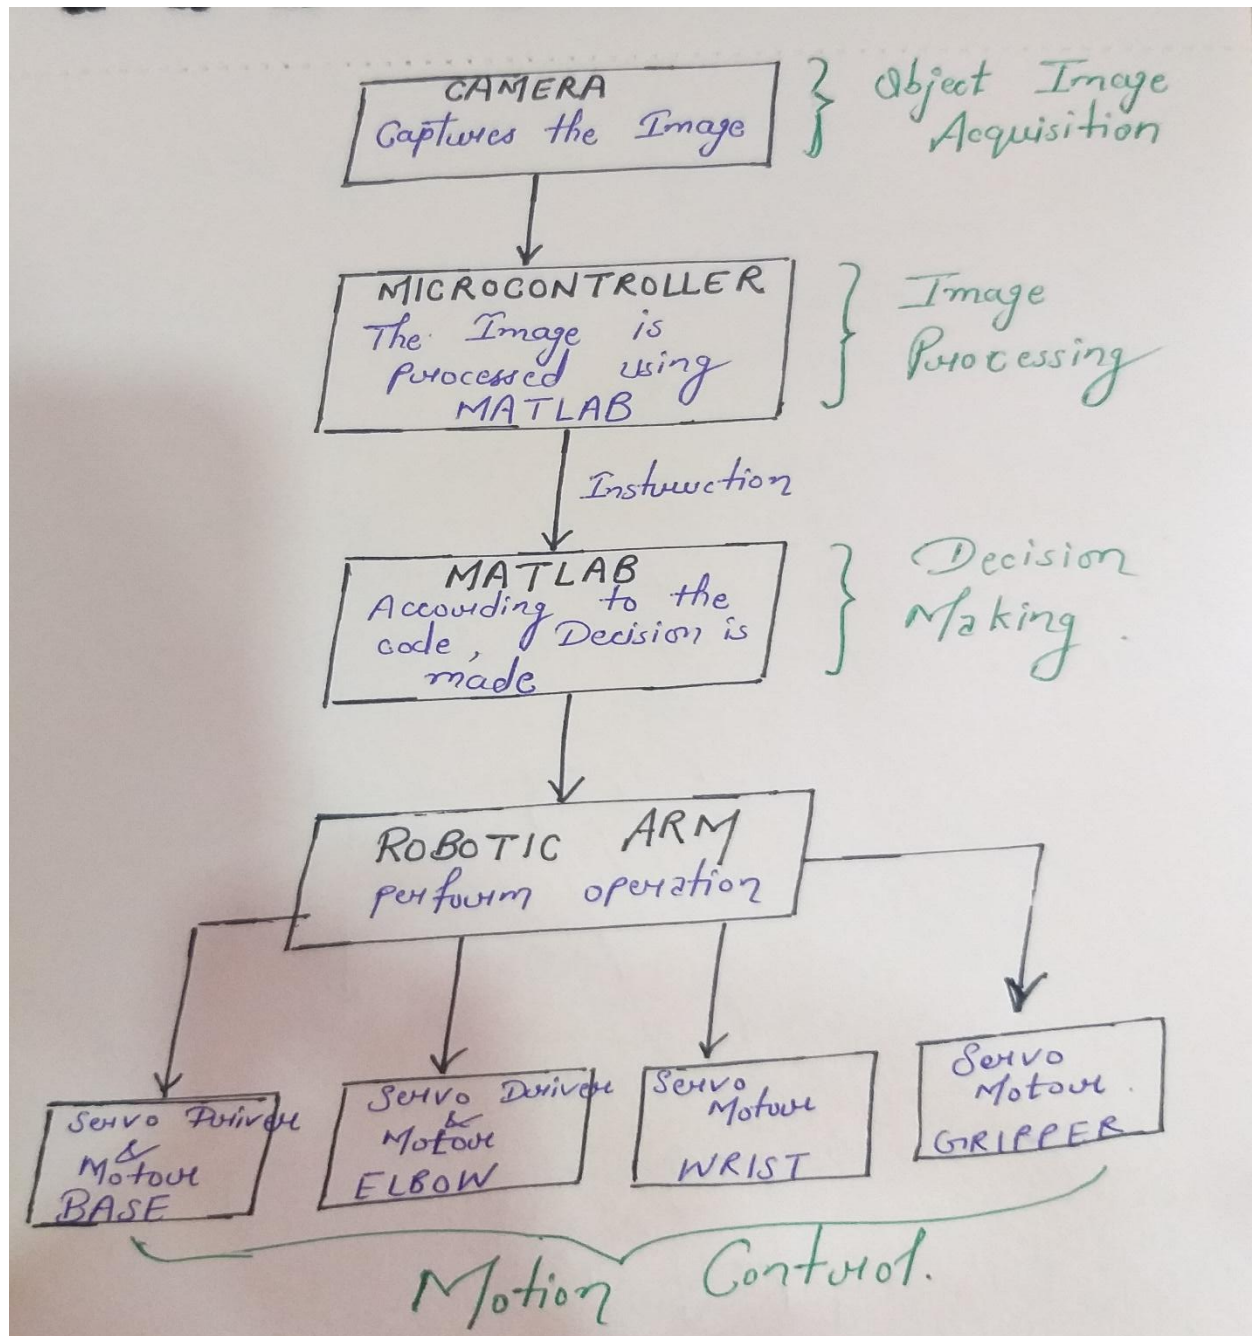 CAMERA
Captures the Image
Object Image
Acquisition
MICROCONTROLLER
The Image is
processed using
MATLAB
Image
Processing
Instruction
MATLAB
According to the
code, Decision is
made
Decision
Making
ROBOTIC ARM
perform operation
Servo Driver
&
Motor
BASE
Servo Driver
&
Motor
ELBOW
Servo
Motor
WRIST
Servo
Motor
GRIPPER
Motion Control.